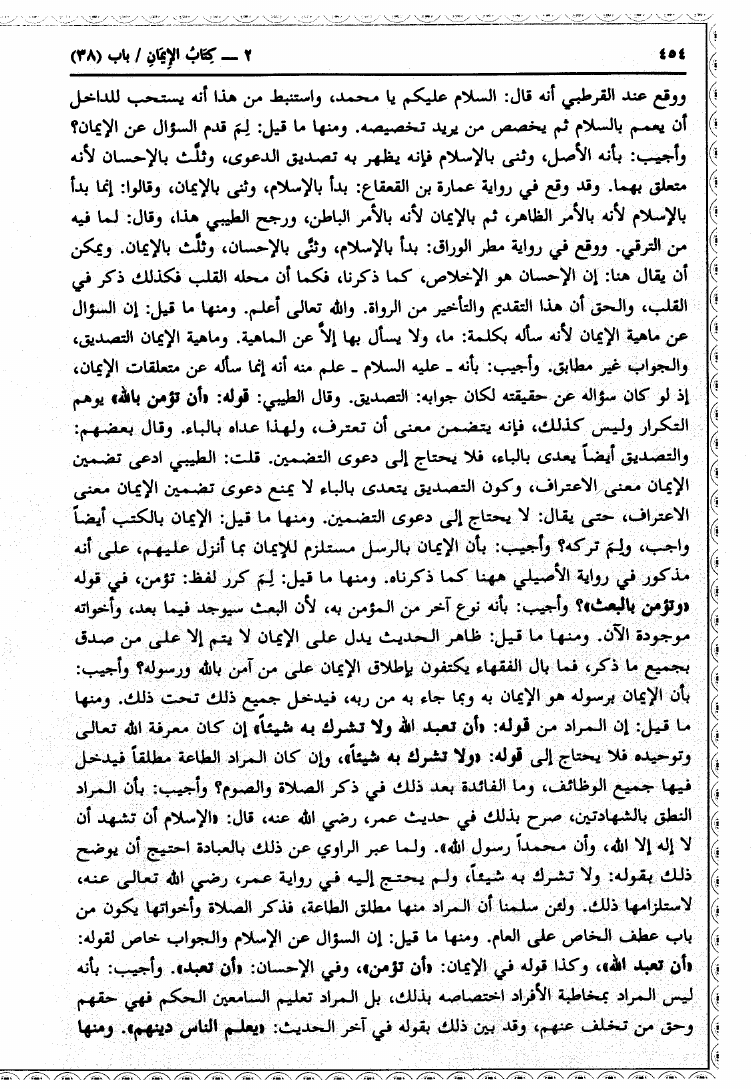 ٤٥٤
٢ ـــ كِتَابُ الإِيمَانِ / باب (٣٨)
ووقع عند القرطبي أنه قال: السلام عليكم يا محمد، واستنبط من هذا أنه يستحب للداخل
أن يعمم بالسلام ثم يخصص من يريد تخصيصه. ومنها ما قيل: لِمَ قدم السؤال عن الإيمان؟
وأجيب: بأنه الأصل، وثنى بالإسلام فإنه يظهر به تصديق الدعوى، وثلَّث بالإحسان لأنه
متعلق بهما. وقد وقع في رواية عمارة بن القعقاع: بدأ بالإسلام، وثنى بالإيمان، وقالوا: إنما بدأ
بالإسلام لأنه بالأمر الظاهر، ثم بالإيمان لأنه بالأمر الباطن، ورجح الطيبي هذا، وقال: لما فيه
من الترقي. ووقع في رواية مطر الوراق: بدأ بالإسلام، وثنَّى بالإحسان، وثلَّث بالإيمان. ويمكن
أن يقال هنا: إن الإحسان هو الإخلاص، كما ذكرنا، فكما أن محله القلب فكذلك ذكر في
القلب، والحق أن هذا التقديم والتأخير من الرواة. والله تعالى أعلم. ومنها ما قيل: إن السؤال
عن ماهية الإيمان لأنه سأله بكلمة: ما، ولا يسأل بها إلاَّ عن الماهية. وماهية الإيمان التصديق،
والجواب غير مطابق. وأجيب: بأنه ـ عليه السلام ـ علم منه أنه إنما سأله عن متعلقات الإيمان،
إذ لو كان سؤاله عن حقيقته لكان جوابه: التصديق. وقال الطيبي: قوله: «أن تؤمن بالله» يوهم
التكرار وليس كذلك، فإنه يتضمن معنى أن تعترف، ولهذا عداه بالباء. وقال بعضهم:
والتصديق أيضاً يعدى بالباء، فلا يحتاج إلى دعوى التضمين. قلت: الطيبي ادعى تضمين
الإيمان معنى الاعتراف، وكون التصديق يتعدى بالباء لا يمنع دعوى تضمين الإيمان معنى
الاعتراف، حتى يقال: لا يحتاج إلى دعوى التضمين. ومنها ما قيل: الإيمان بالكتب أيضاً
واجب، ولِمَ تركه؟ وأجيب: بأن الإيمان بالرسل مستلزم للإيمان بما أنزل عليهم، على أنه
مذكور في رواية الأصيلي ههنا كما ذكرناه. ومنها ما قيل: لِمَ كرر لفظ: تؤمن، في قوله
«وتؤمن بالبعث»؟ وأجيب: بأنه نوع آخر من المؤمن به، لأن البعث سيوجد فيما بعد، وأخواته
موجودة الآن. ومنها ما قيل: ظاهر الحديث يدل على الإيمان لا يتم إلا على من صدق
بجميع ما ذكر، فما بال الفقهاء يكتفون بإطلاق الإيمان على من آمن بالله ورسوله؟ وأجيب:
بأن الإيمان برسوله هو الإيمان به وبما جاء به من ربه، فيدخل جميع ذلك تحت ذلك. ومنها
ما قيل: إن المراد من قوله: «أن تعبد الله ولا تشرك به شيئاً» إن كان معرفة الله تعالى
وتوحيده فلا يحتاج إلى قوله: «ولا تشرك به شيئاً»، وإن كان المراد الطاعة مطلقاً فيدخل
فيها جميع الوظائف، وما الفائدة بعد ذلك في ذكر الصلاة والصوم؟ وأجيب: بأن المراد
النطق بالشهادتين، صرح بذلك في حديث عمر، رضي الله عنه، قال: «الإسلام أن تشهد أن
لا إله إلا الله، وأن محمداً رسول الله». ولما عبر الراوي عن ذلك بالعبادة احتيج أن يوضح
ذلك بقوله: ولا تشرك به شيئاً، ولم يحتج إليه في رواية عمر، رضي الله تعالى عنه،
لاستلزامها ذلك. ولئن سلمنا أن المراد منها مطلق الطاعة، فذكر الصلاة وأخواتها يكون من
باب عطف الخاص على العام. ومنها ما قيل: إن السؤال عن الإسلام والجواب خاص لقوله:
«أن تعبد الله»، وكذا قوله في الإيمان: «أن تؤمن»، وفي الإحسان: «أن تعبد». وأجيب: بأنه
ليس المراد بمخاطبة الأفراد اختصاصه بذلك، بل المراد تعليم السامعين الحكم فهي حقهم
وحق من تخلف عنهم، وقد بين ذلك بقوله في آخر الحديث: «يعلم الناس دينهم». ومنها